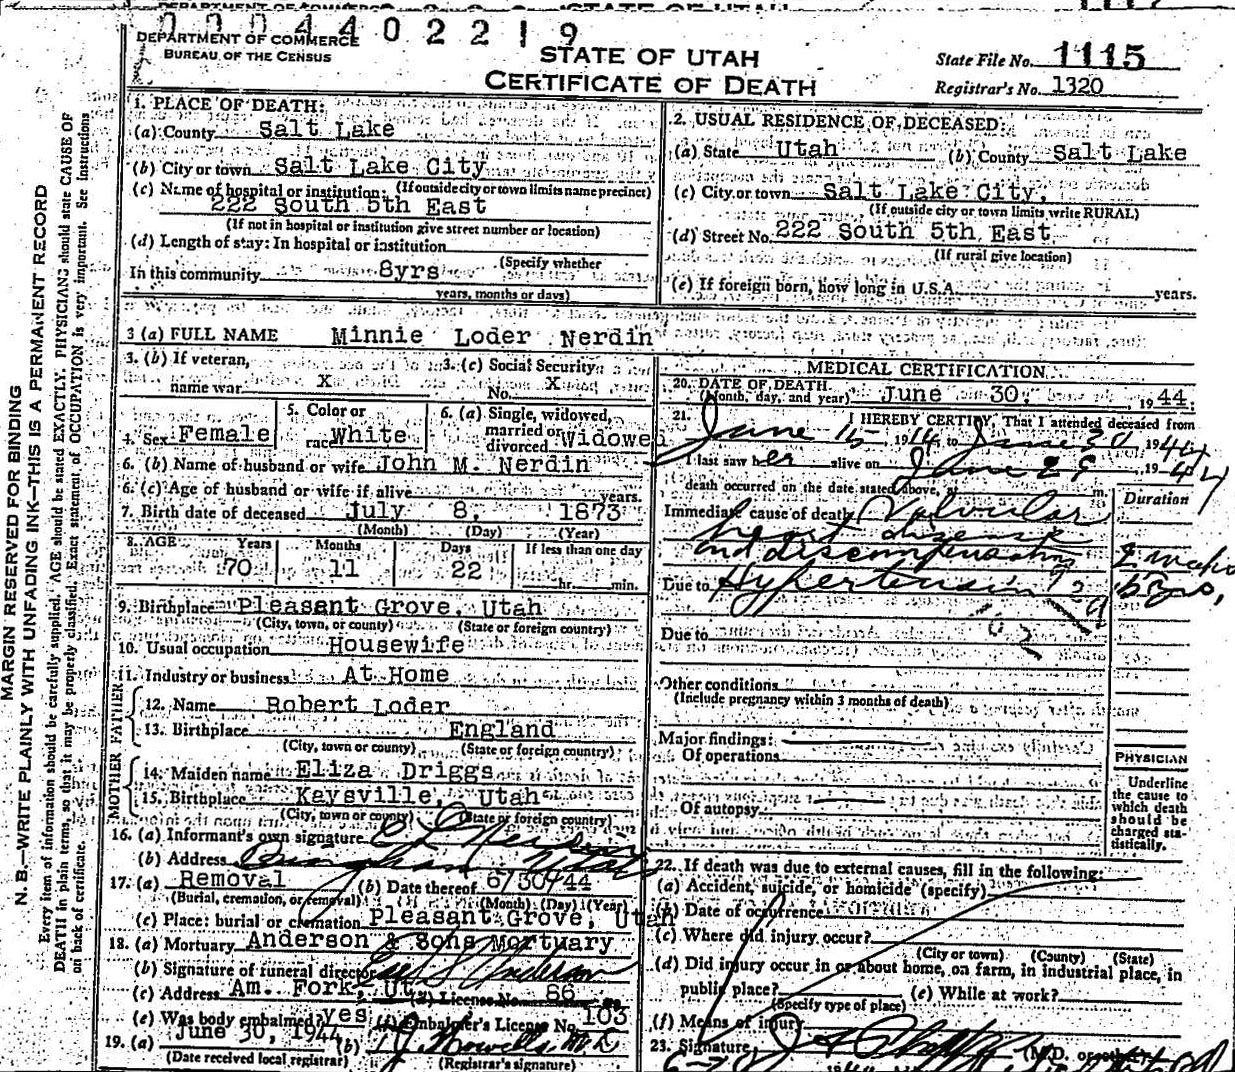 DEPARTMENT OF COMMERCE
STATE OF UTAH
0004402219
DEPARTMENT OF COMMERCE
BUREAU OF THE CENSUS
STATE OF UTAH
CERTIFICATE OF DEATH
State File No. 1115
Registrar's No. 1320
MARGIN RESERVED FOR BINDING
N. B.—WRITE PLAINLY WITH UNFADING INK—THIS IS A PERMANENT RECORD
Every item of information should be carefully supplied. AGE should be stated EXACTLY. PHYSICIAN should state CAUSE OF
DEATH in plain terms, so that it may be properly classified. Exact statement of OCCUPATION is very important. See instructions
on back of certificate.
1. PLACE OF DEATH:
(a) County Salt Lake
(b) City or town Salt Lake City
(If outside city or town limits name precinct)
(c) Name of hospital or institution:
222 South 5th East
(If not in hospital or institution give street number or location)
(d) Length of stay: In hospital or institution
(Specify whether
In this community 8yrs
years, months or days)
2. USUAL RESIDENCE OF DECEASED:
(a) State Utah (b) County Salt Lake
(c) City or town Salt Lake City,
(If outside city or town limits write RURAL)
(d) Street No. 222 South 5th East
(If rural give location)
(e) If foreign born, how long in U.S.A. years.
3 (a) FULL NAME Minnie Loder Nerdin
3. (b) If veteran,
name war x
3. (c) Social Security
No. x
4. Sex Female
5. Color or
race White
6. (a) Single, widowed,
married or
divorced Widowed
6. (b) Name of husband or wife John M. Nerdin
6. (c) Age of husband or wife if alive years.
7. Birth date of deceased July 8, 1873
(Month) (Day) (Year)
8. AGE Years Months Days If less than one day
70 11 22 hr. min.
9. Birthplace Pleasant Grove, Utah
(City, town, or county) (State or foreign country)
10. Usual occupation Housewife
11. Industry or business At Home
FATHER
12. Name Robert Loder
13. Birthplace England
(City, town or county) (State or foreign country)
MOTHER
14. Maiden name Eliza Driggs
15. Birthplace Kaysville, Utah
(City, town or county) (State or foreign country)
16. (a) Informant's own signature Nerdin
(b) Address Bingham Utah
17. (a) Removal (b) Date thereof 6/30/44
(Burial, cremation, or removal) (Month) (Day) (Year)
(c) Place: burial or cremation Pleasant Grove, Utah
18. (a) Mortuary Anderson & Sons Mortuary
(b) Signature of funeral director Anderson
(c) Address Am. Fork, Ut. (d) License No. 86
(e) Was body embalmed? yes (f) Embalmer's License No. 103
19. (a) June 30, 1944 (b)
(Date received local registrar) (Registrar's signature)
MEDICAL CERTIFICATION
20. DATE OF DEATH
(Month, day, and year) June 30, 1944
21. I HEREBY CERTIFY, That I attended deceased from
June 15 1944 to June 30 1944
I last saw her alive on June 29 1944
death occurred on the date stated above, at m.
Duration
Immediate cause of death Valvular
heart disease
and discompensation
Due to Hypertension
5 yrs.
Due to
Other conditions
(Include pregnancy within 3 months of death)
Major findings:
Of operations
Of autopsy
PHYSICIAN
Underline
the cause to
which death
should be
charged sta-
tistically.
22. If death was due to external causes, fill in the following:
(a) Accident, suicide, or homicide (specify)
(b) Date of occurrence
(c) Where did injury occur?
(City or town) (County) (State)
(d) Did injury occur in or about home, on farm, in industrial place, in
public place? (e) While at work?
(Specify type of place)
(f) Means of injury
23. Signature (M.D. or other)